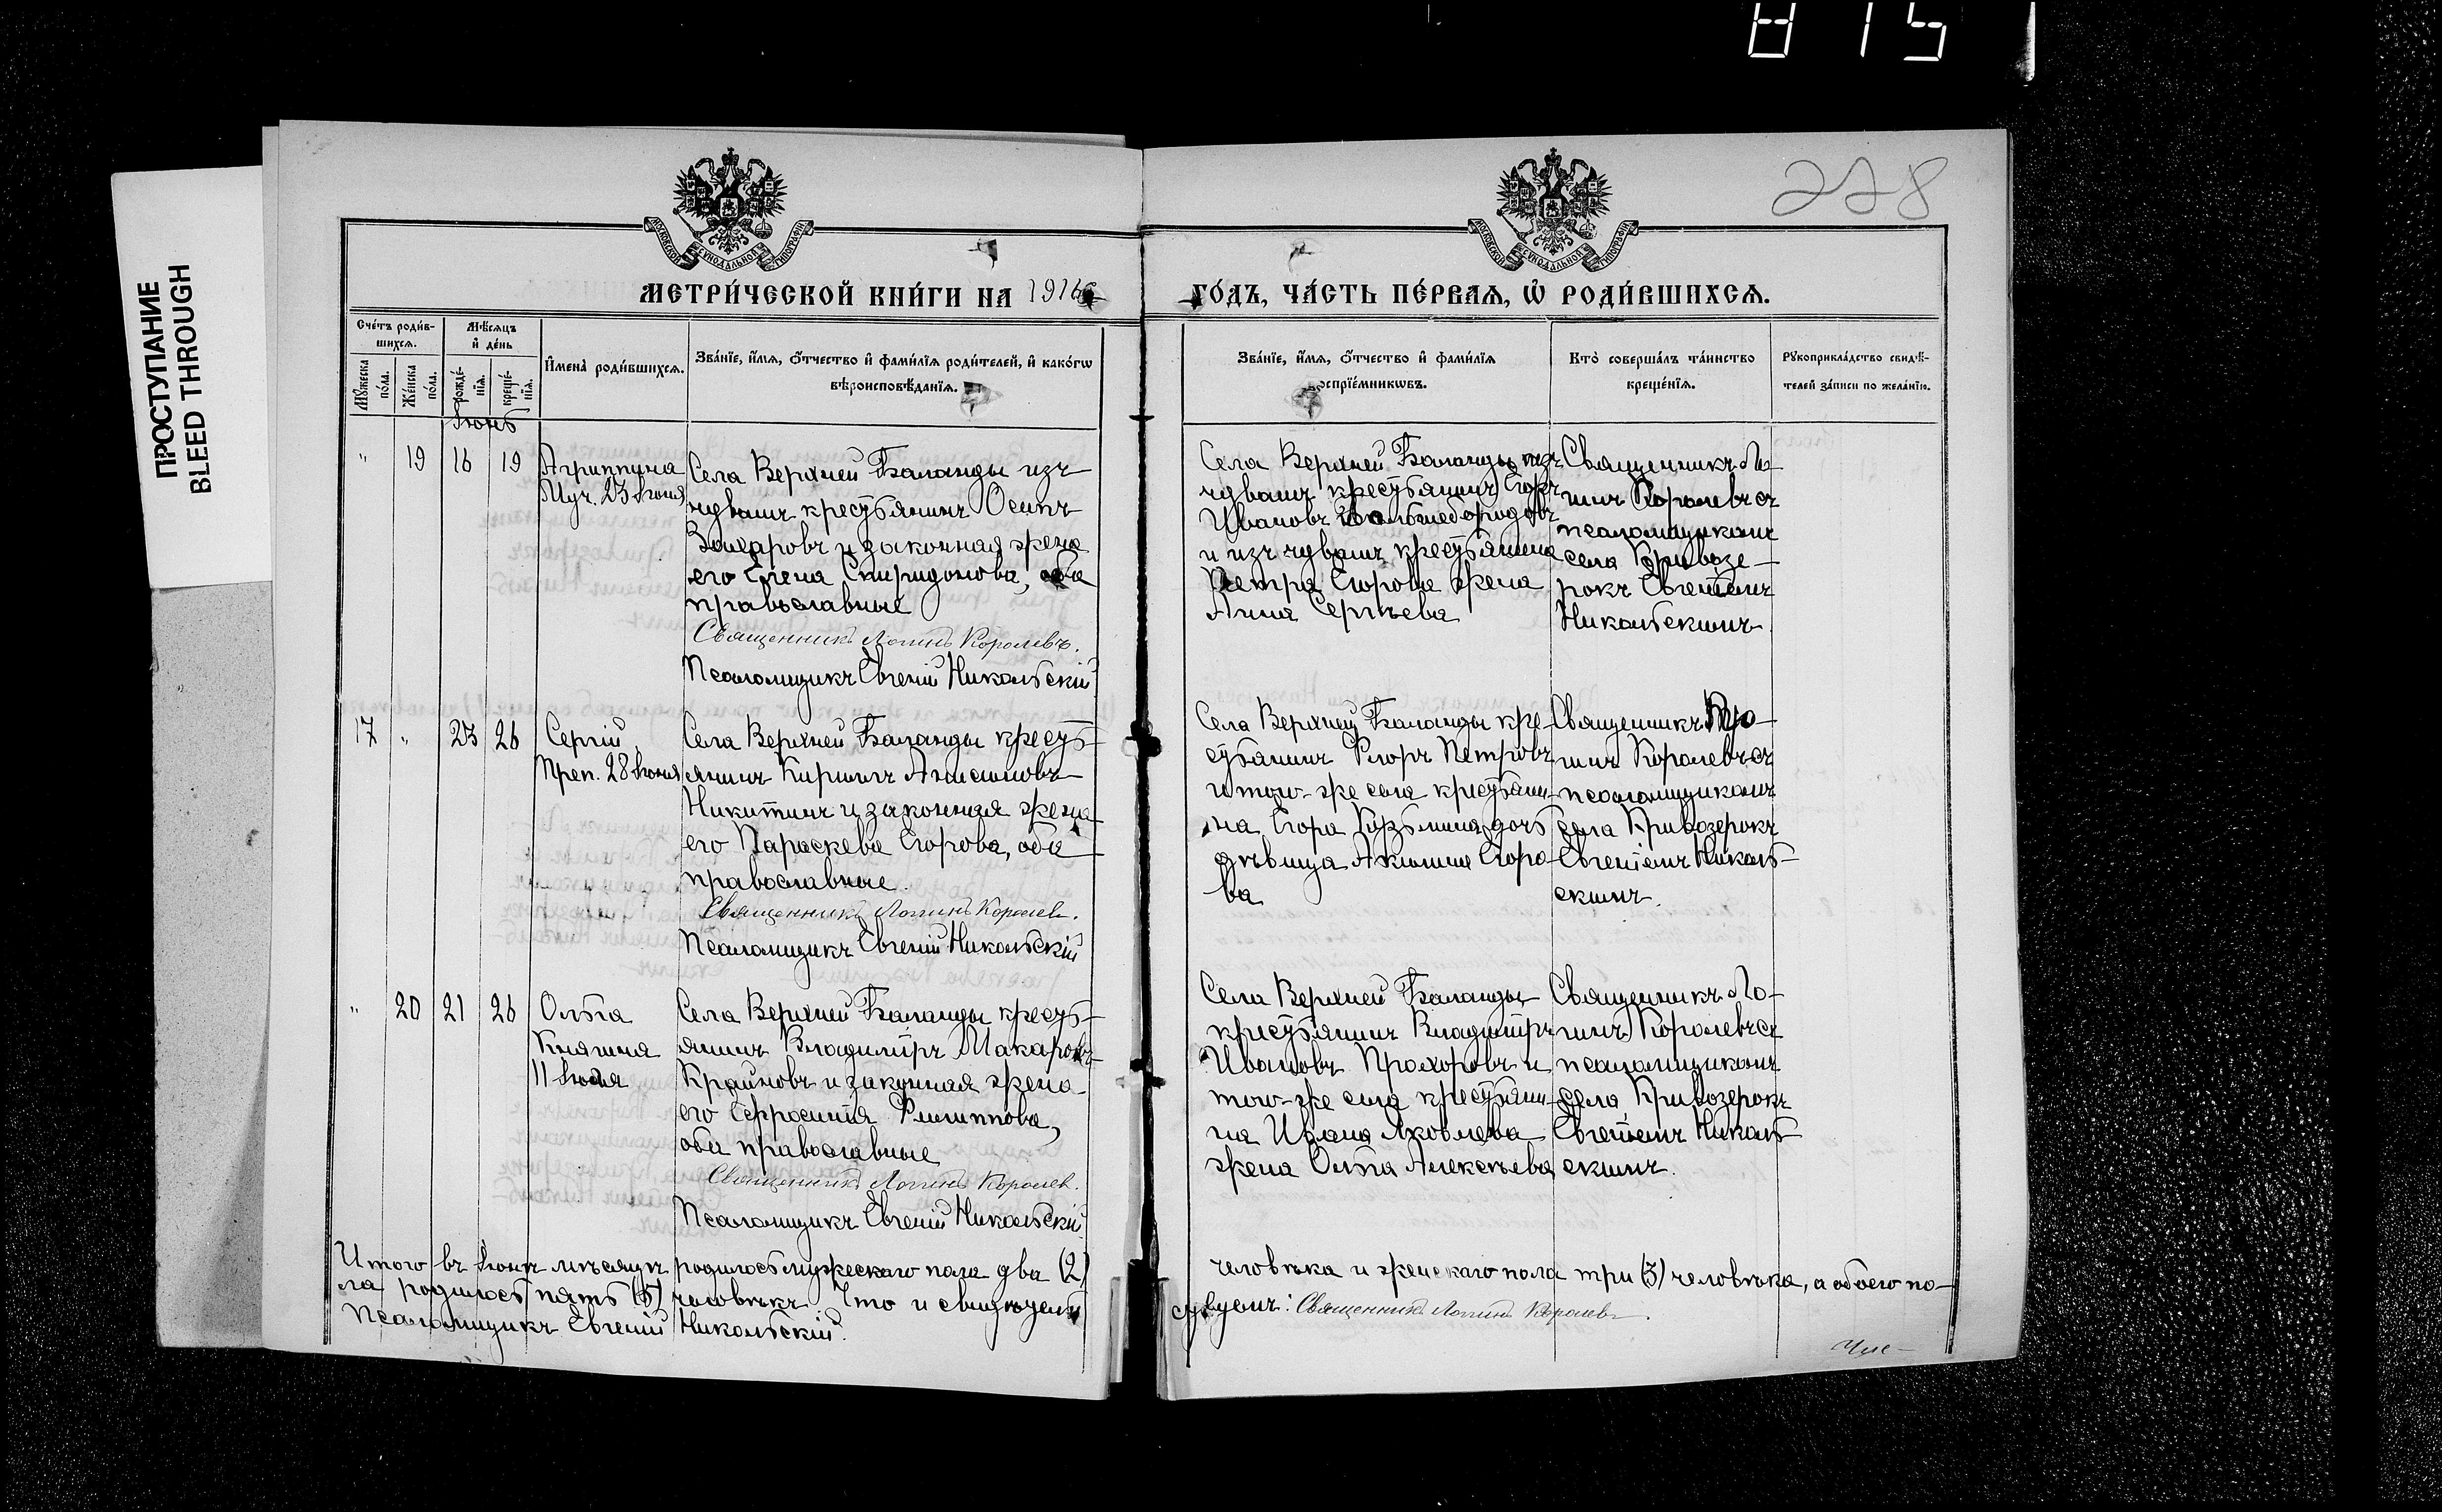 8151
ПРОСТУПАНИЕ
BLEED THROUGH
228
МОСКОВСКОЙ СѴНОДАЛЬНОЙ ТИПОГРАФІИ
МОСКОВСКОЙ СѴНОДАЛЬНОЙ ТИПОГРАФІИ
МЕТРИ́ЧЕСКОЙ КНИ́ГИ НА 1916
ГО́ДЪ, ЧА́СТЬ ПЕ́РВАѦ, Ѡ҆ РОДИ́ВШИХСѦ.
Сче́тъ роди́в-
шихсѧ.
Мꙋ́жеска по́ла.
Же́нска по́ла.
Мѣ́сѧцъ
и҆ де́нь
рожде́-
нїѧ.
креще́-
нїѧ.
И҆мена̀ роди́вшихсѧ.
Зва́нїе, и҆́мѧ, ѻ҆́тчество и҆ фами́лїѧ роди́телей, и҆ како́гѡ
вѣроисповѣ́данїѧ.
Зва́нїе, и҆́мѧ, ѻ҆́тчество и҆ фами́лїѧ
воспрїе́мникѡвъ.
Кто̀ соверша́лъ та́инство
креще́нїѧ.
Рꙋкоприкла́дство свидѣ́-
телей за́писи по жела́нїю.
Іюнь
" 19 16 19
Агриппина
Муч. 23 Іюня
Села Верхней Баланды изъ
чувашъ крестьянинъ Осипъ
Захаровъ и законная жена
его Елена Спиридонова, оба
православные
Священникъ Логинъ Королевъ.
Псаломщикъ Евгеній Никольскій
Села Верхней Баланды изъ
чувашъ крестьянинъ Егоръ
Ивановъ
и изъ чувашъ крестьянина
Петра Егорова жена
Анна Сергѣева
Священникъ Ло-
гинъ Королевъ съ
псаломщикомъ
села Кривозе-
рокъ Евгеніемъ
Никольскимъ
17 " 23 26
Сергій
Преп. 28 Іюня
Села Верхней Баланды кресть-
янинъ Кириллъ Анисимовъ
Никитинъ и законная жена
его Параскева Егорова, оба
православные.
Священникъ Логинъ Королев.
Псаломщикъ Евгеній Никольскій
Села Верхней Баланды кре-
стьянинъ Флоръ Петровъ
и того-же села крестьяни-
на Егора Кузьмина дочь
дѣвица Акилина Егоро-
ва
Священникъ Ло-
гинъ Королевъ съ
псаломщикомъ
села Кривозерокъ
Евгеніемъ Николь-
скимъ.
" 20 21 26
Ольга
Княгиня
11 Іюля
Села Верхней Баланды кресть-
янинъ Владиміръ Макаровъ
Крайновъ и законная жена
его Евфросинія Филиппова,
оба православные
Священникъ Логинъ Королев.
Псаломщикъ Евгеній Никольскій
Села Верхней Баланды
крестьянинъ Владиміръ
Ивановъ Прохоровъ и
того-же села крестьяни-
на Ивана Яковлева
жена Ольга Алексѣева
Священникъ Ло-
гинъ Королевъ съ
псаломщикомъ
села Кривозерокъ
Евгеніемъ Николь-
скимъ.
Итого въ Іюнѣ мѣсяцѣ родилось мужескаго пола два (2)
человѣка и женскаго пола три (3) человѣка, а обоего по-
ла родилось пять (5) человѣкъ. Что и свидѣтель-
ствуемъ: Священникъ Логинъ Королев.
Псаломщикъ Евгеній Никольскій.